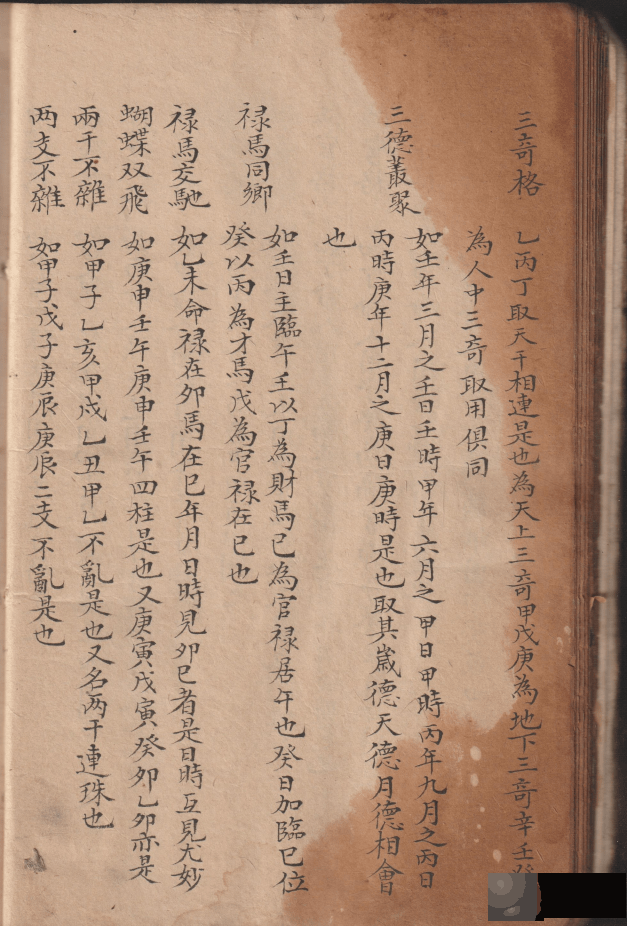 三竒格　乙丙丁取天干相連是也為天上三竒甲戊庚為地下三竒辛壬癸
為人中三竒取用俱同
三德叢聚　如壬年三月之壬日壬時甲年六月之甲日甲時丙年九月之丙日
丙時庚年十二月之庚日庚時是也取其嵗德天德月德相會
也
禄馬同鄉　如壬日主臨午壬以丁為財馬己為官禄居午也癸日加臨巳位
癸以丙為才馬戊為官禄在巳也
禄馬交馳　如乙未命禄在卯馬在巳年月日時見卯巳者是日時互見尤妙
蝴蝶双飛　如庚申壬午庚申壬午四柱是也又庚寅戊寅癸卯乙卯亦是
兩干不雜　如甲子乙亥甲戌乙丑甲乙不亂是也又名两干連珠也
两支不雜　如甲子戊子庚辰庚辰二支不亂是也